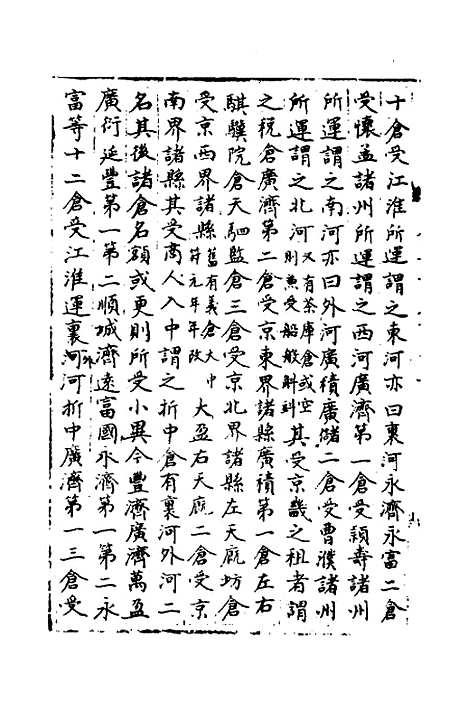 十倉受江淮所運謂之東河亦曰裏河永濟永富二倉
受懷孟諸州所運謂之西河廣濟第一倉受潁壽諸州
所運謂之南河亦曰外河廣積廣儲二倉受曹濮諸州
所運謂之北河又有茶庫倉或空則兼受船般斛㪷其受京畿之租者謂
之稅倉廣濟第二倉受京東界諸縣廣積第一倉左右
騏驥院倉天駟監倉三倉受京北界諸縣左天厩坊倉
受京西界諸縣舊有義倉大中符元年年改大盈右天厩二倉受京
南界諸縣其受商人入中謂之折中倉有裏河外河二
名其後諸倉名額或更則所受小異今豐濟廣濟萬盈
廣衍延豐第一第二順城濟遠富國永濟第一第二永
富等十二倉受江淮運裏河外河折中廣濟第一三倉受